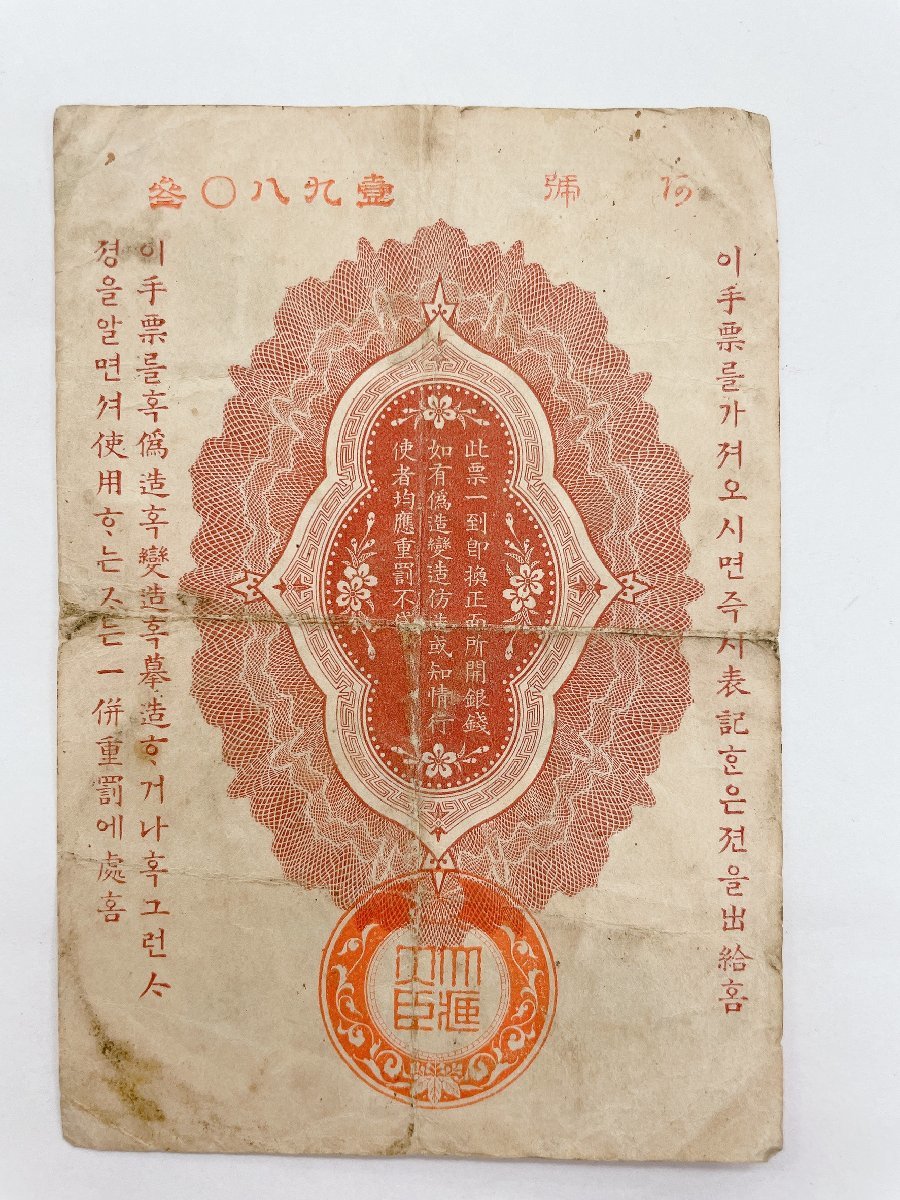 號
壹九八〇叄
이手票를가져오시면즉시表記ᄒᆞᆫ은젼을出給홈
此票一到卽換正面所開銀錢
如有僞造變造仿造或知情行
使者均應重罰不
이手票를혹僞造혹變造혹摹造ᄒᆞ거나혹그런ᄉᆞ
졍을알면셔使用ᄒᆞ는ᄌᆞ는一併重罰에處홈
大藏
大臣